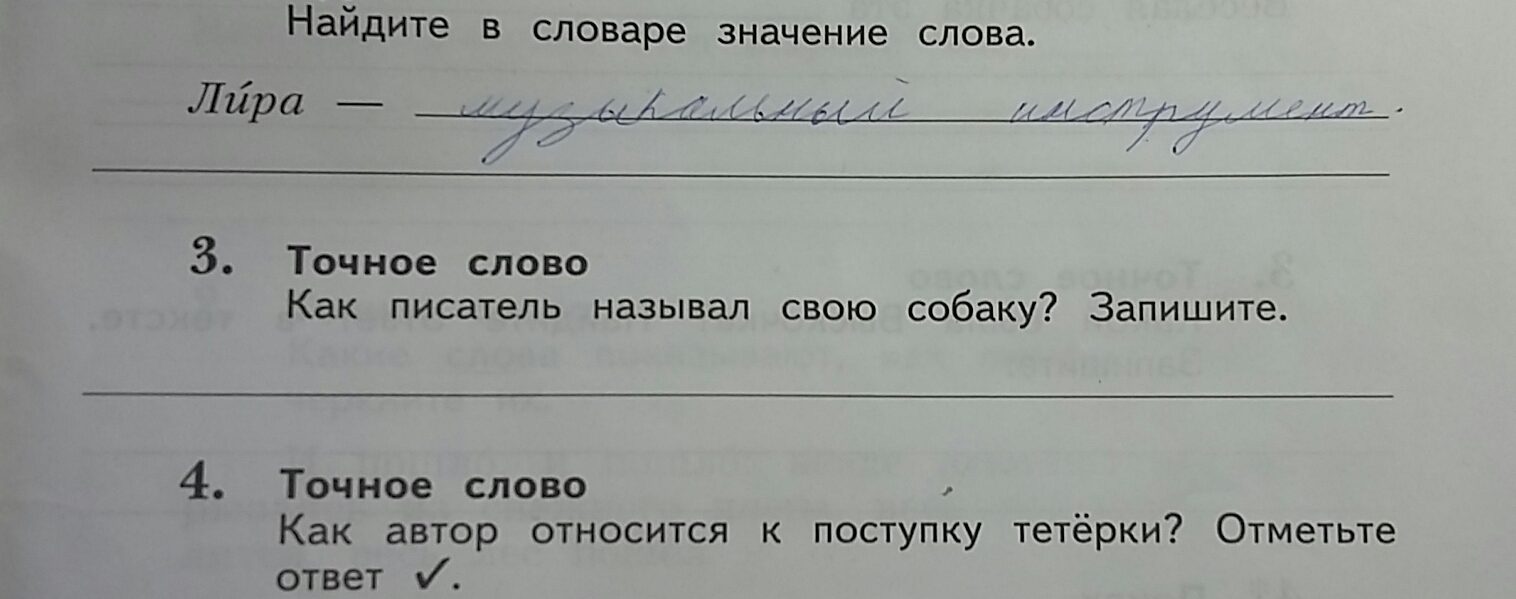 Найдите в словаре значение слова.
Ли́ра — музыкальный инструмент.
3. Точное слово
Как писатель называл свою собаку? Запишите.
4. Точное слово
Как автор относится к поступку тетёрки? Отметьте
ответ ✓.